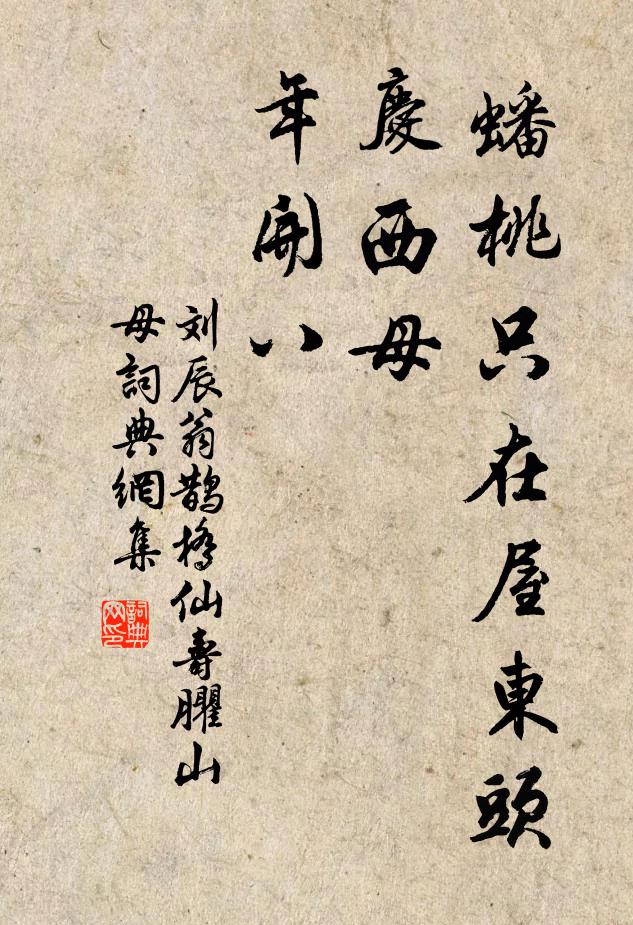 蟠桃只在屋東頭
慶西母
年開八
刘辰翁鵲橋仙壽臞山
母詞典網集
詞典
网印